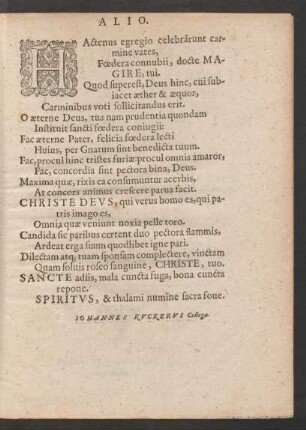 ALIO.
HActenus egregio celebrârunt car-
mine vates,
Fœdera connubii, docte MA-
GIRE, tui.
Quod superest, Deus hinc, cui sub-
iacet æther & æquor,
Carminibus voti sollicitandus erit.
O æterne Deus, tua nam prudentia quondam
Instituit sancti fœdera coniugii:
Fac æterne Pater, felicia fœdera lecti
Huius, per Gnatum sint benedicta tuum.
Fac, procul hinc tristes furiæ procul omnia amaror,
Fac, concordia sint pectora bina, Deus.
Maxima quæ, rixis ea consumuntur acerbis,
At concors animus crescere parua facit.
CHRISTE DEVS, qui verus homo es, qui pa-
tris imago es,
Omnia quæ veniunt noxia pelle toro.
Candida sic paribus certent duo pectora flammis,
Ardeat erga suum quodlibet igne pari.
Dilectam atq; tuam sponsam complectere, vinctam
Quam soluis roseo sanguine, CHRISTE, tuo.
SANCTE adsis, mala cuncta fuga, bona cuncta
repone.
SPIRITVS, & thalami numine sacra foue.
IOHANNES KVCKERVS Collega.